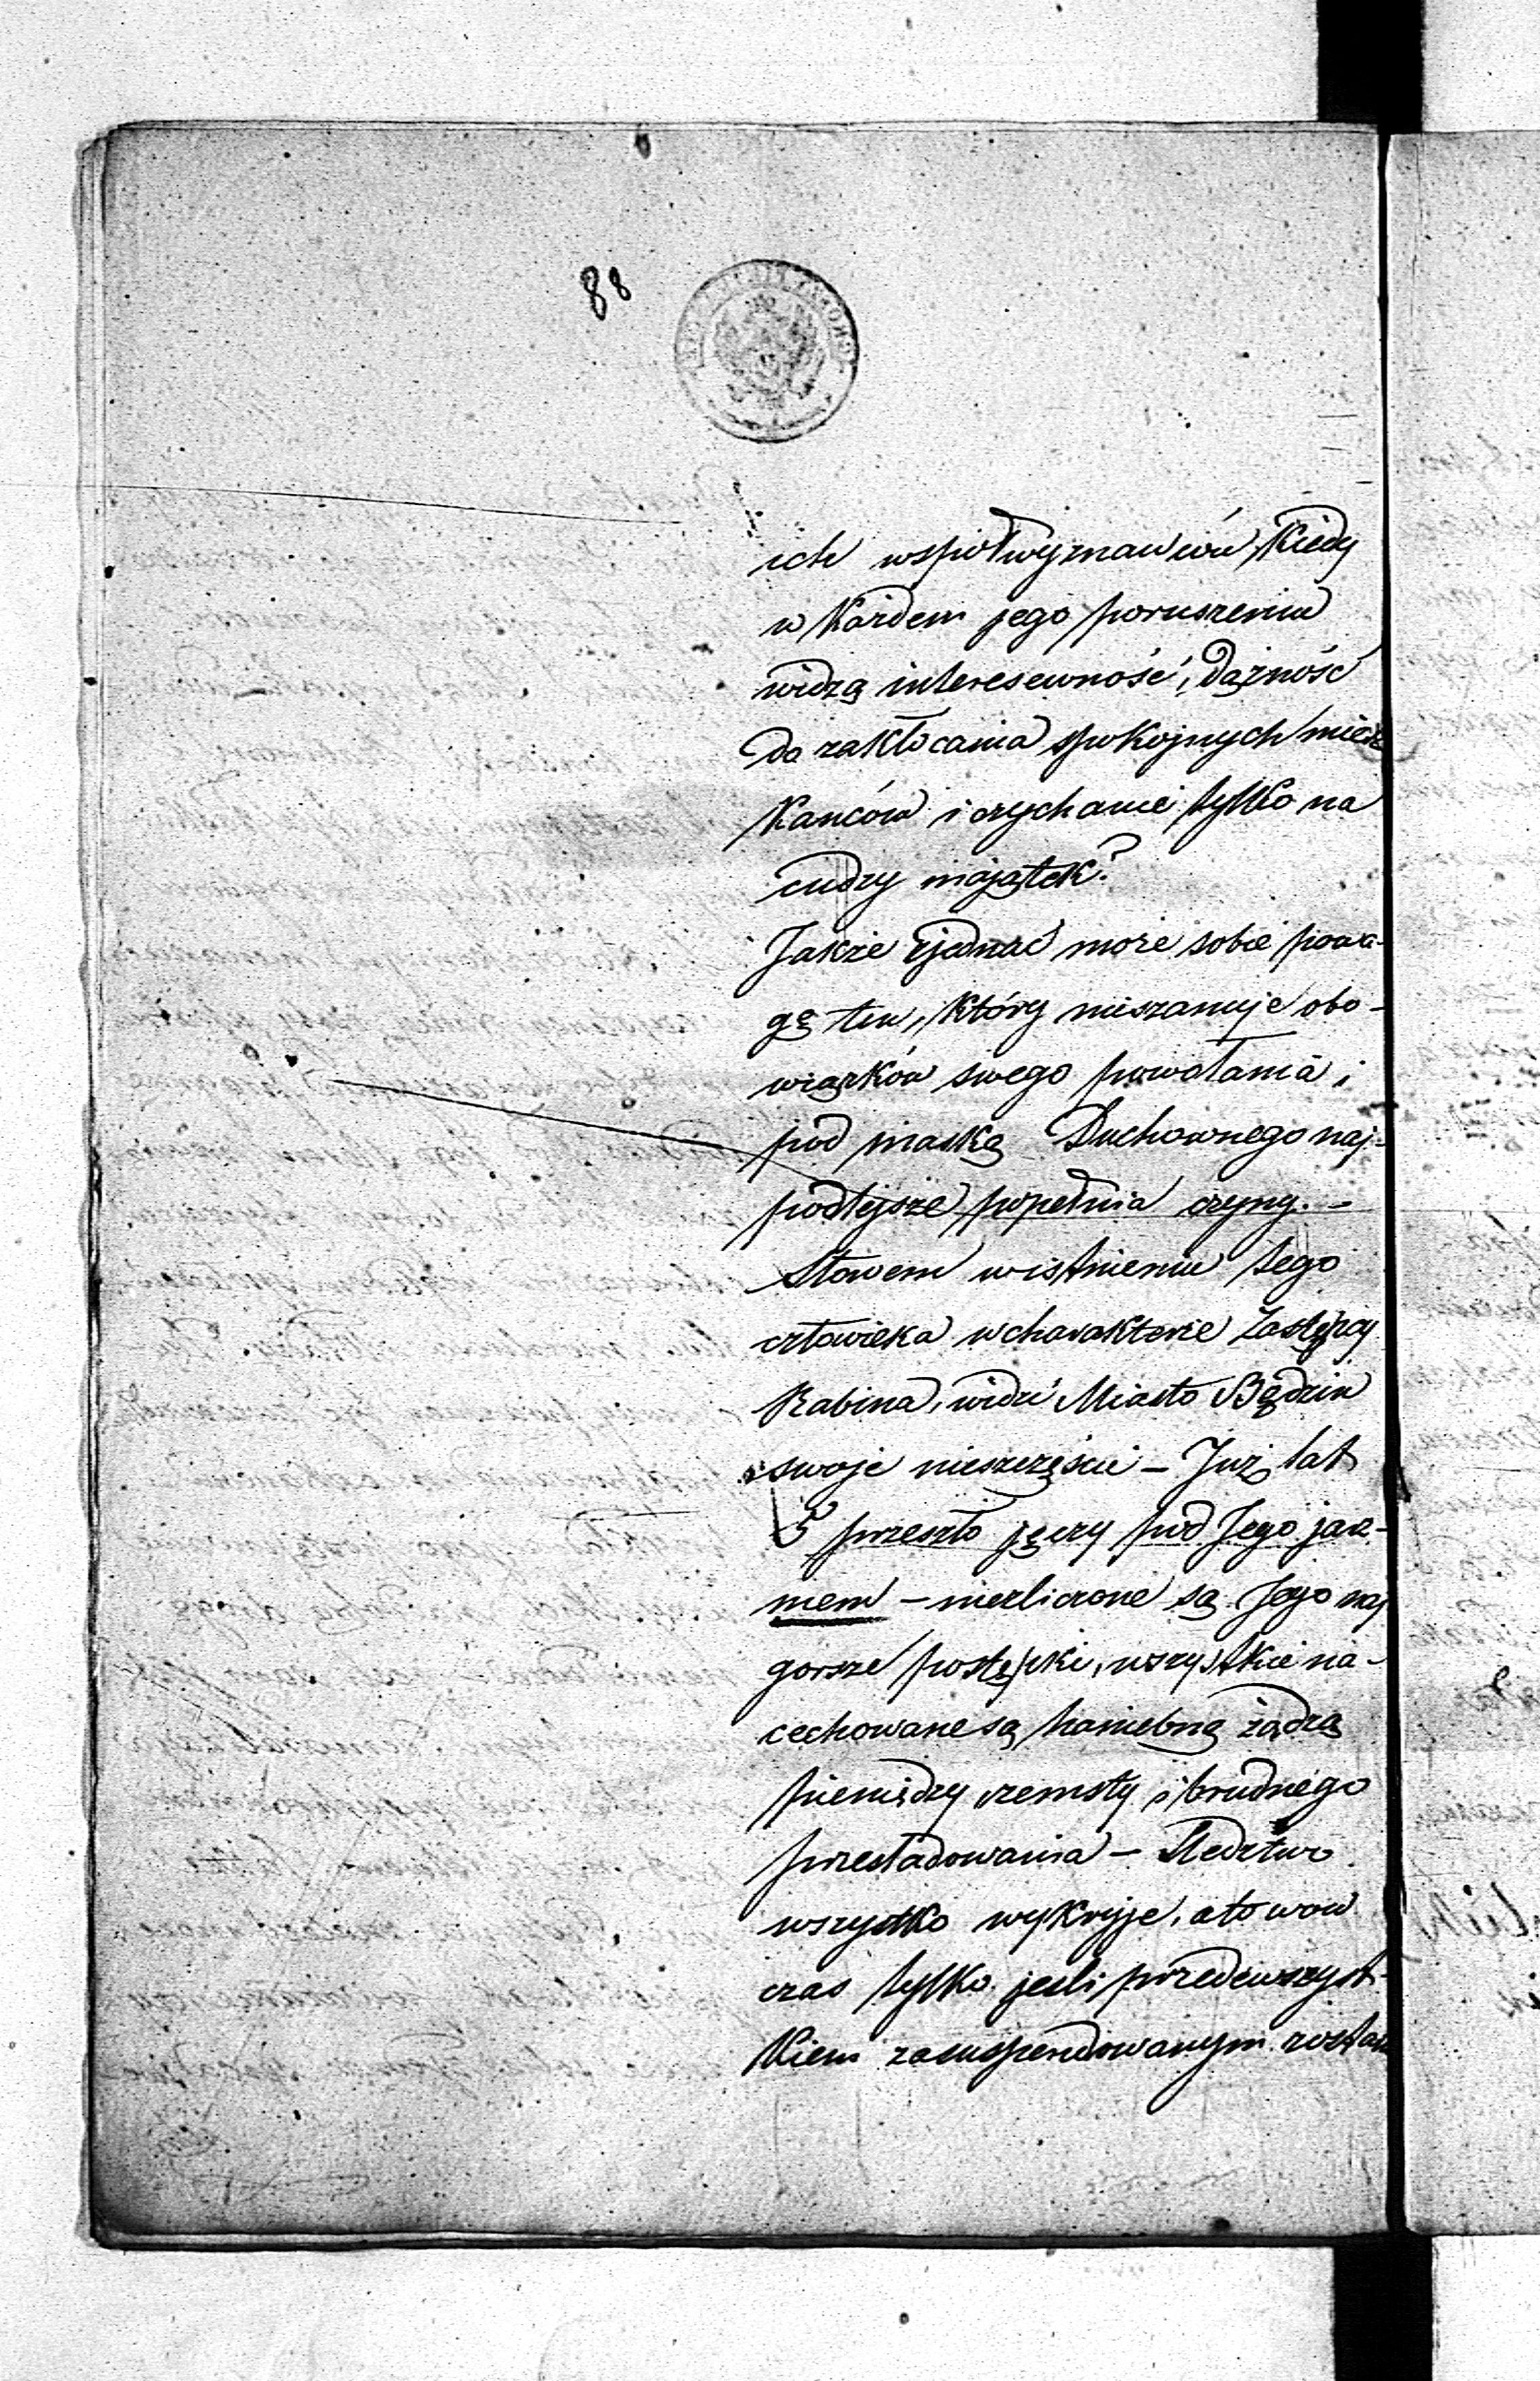 88
ich wspołwyznawców, Kiedy
w Każdem jego poruszeniu
widzą interesewność, Dążność
Do zakłócania spokojnych miesz
Kanców i czychanie tylko na
cudzy majątek?
Jakże zjednać może sobie powa-
gę ten, który nieszanuje obo-
wiązków swego powołania i
pod maską Duchownego naj-
podlejsze popełnia czyny. –
Słowem w istnieniu tego
człowieka w charakterze Zastępcy
Rabina, widzi Miasto Będzin
swoje nieszczęście – Już lat
5 przeszło jęczy pod Jego jarz-
mem – niezliczone są Jego naj
gorsze postępki, wszystkie na-
cechowane są haniebną żądzą
pieniędzy, zemsty i brudnego
prześladowania – Śledztwo
wszystko wykryje, a to wow
czas tylko jeśli przedewszyst-
Kiem zasuspendowanym zostan